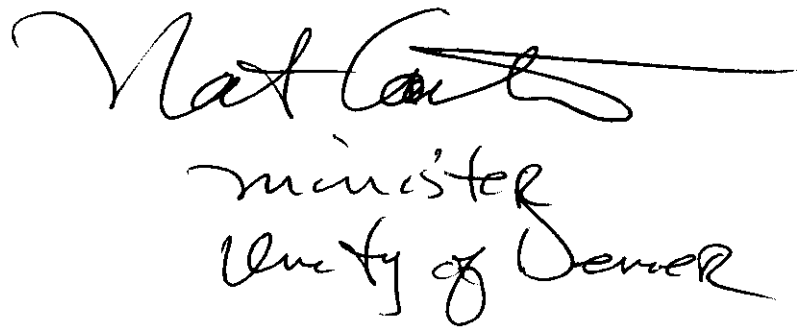 Nat Carter
minister
Unity of Denver